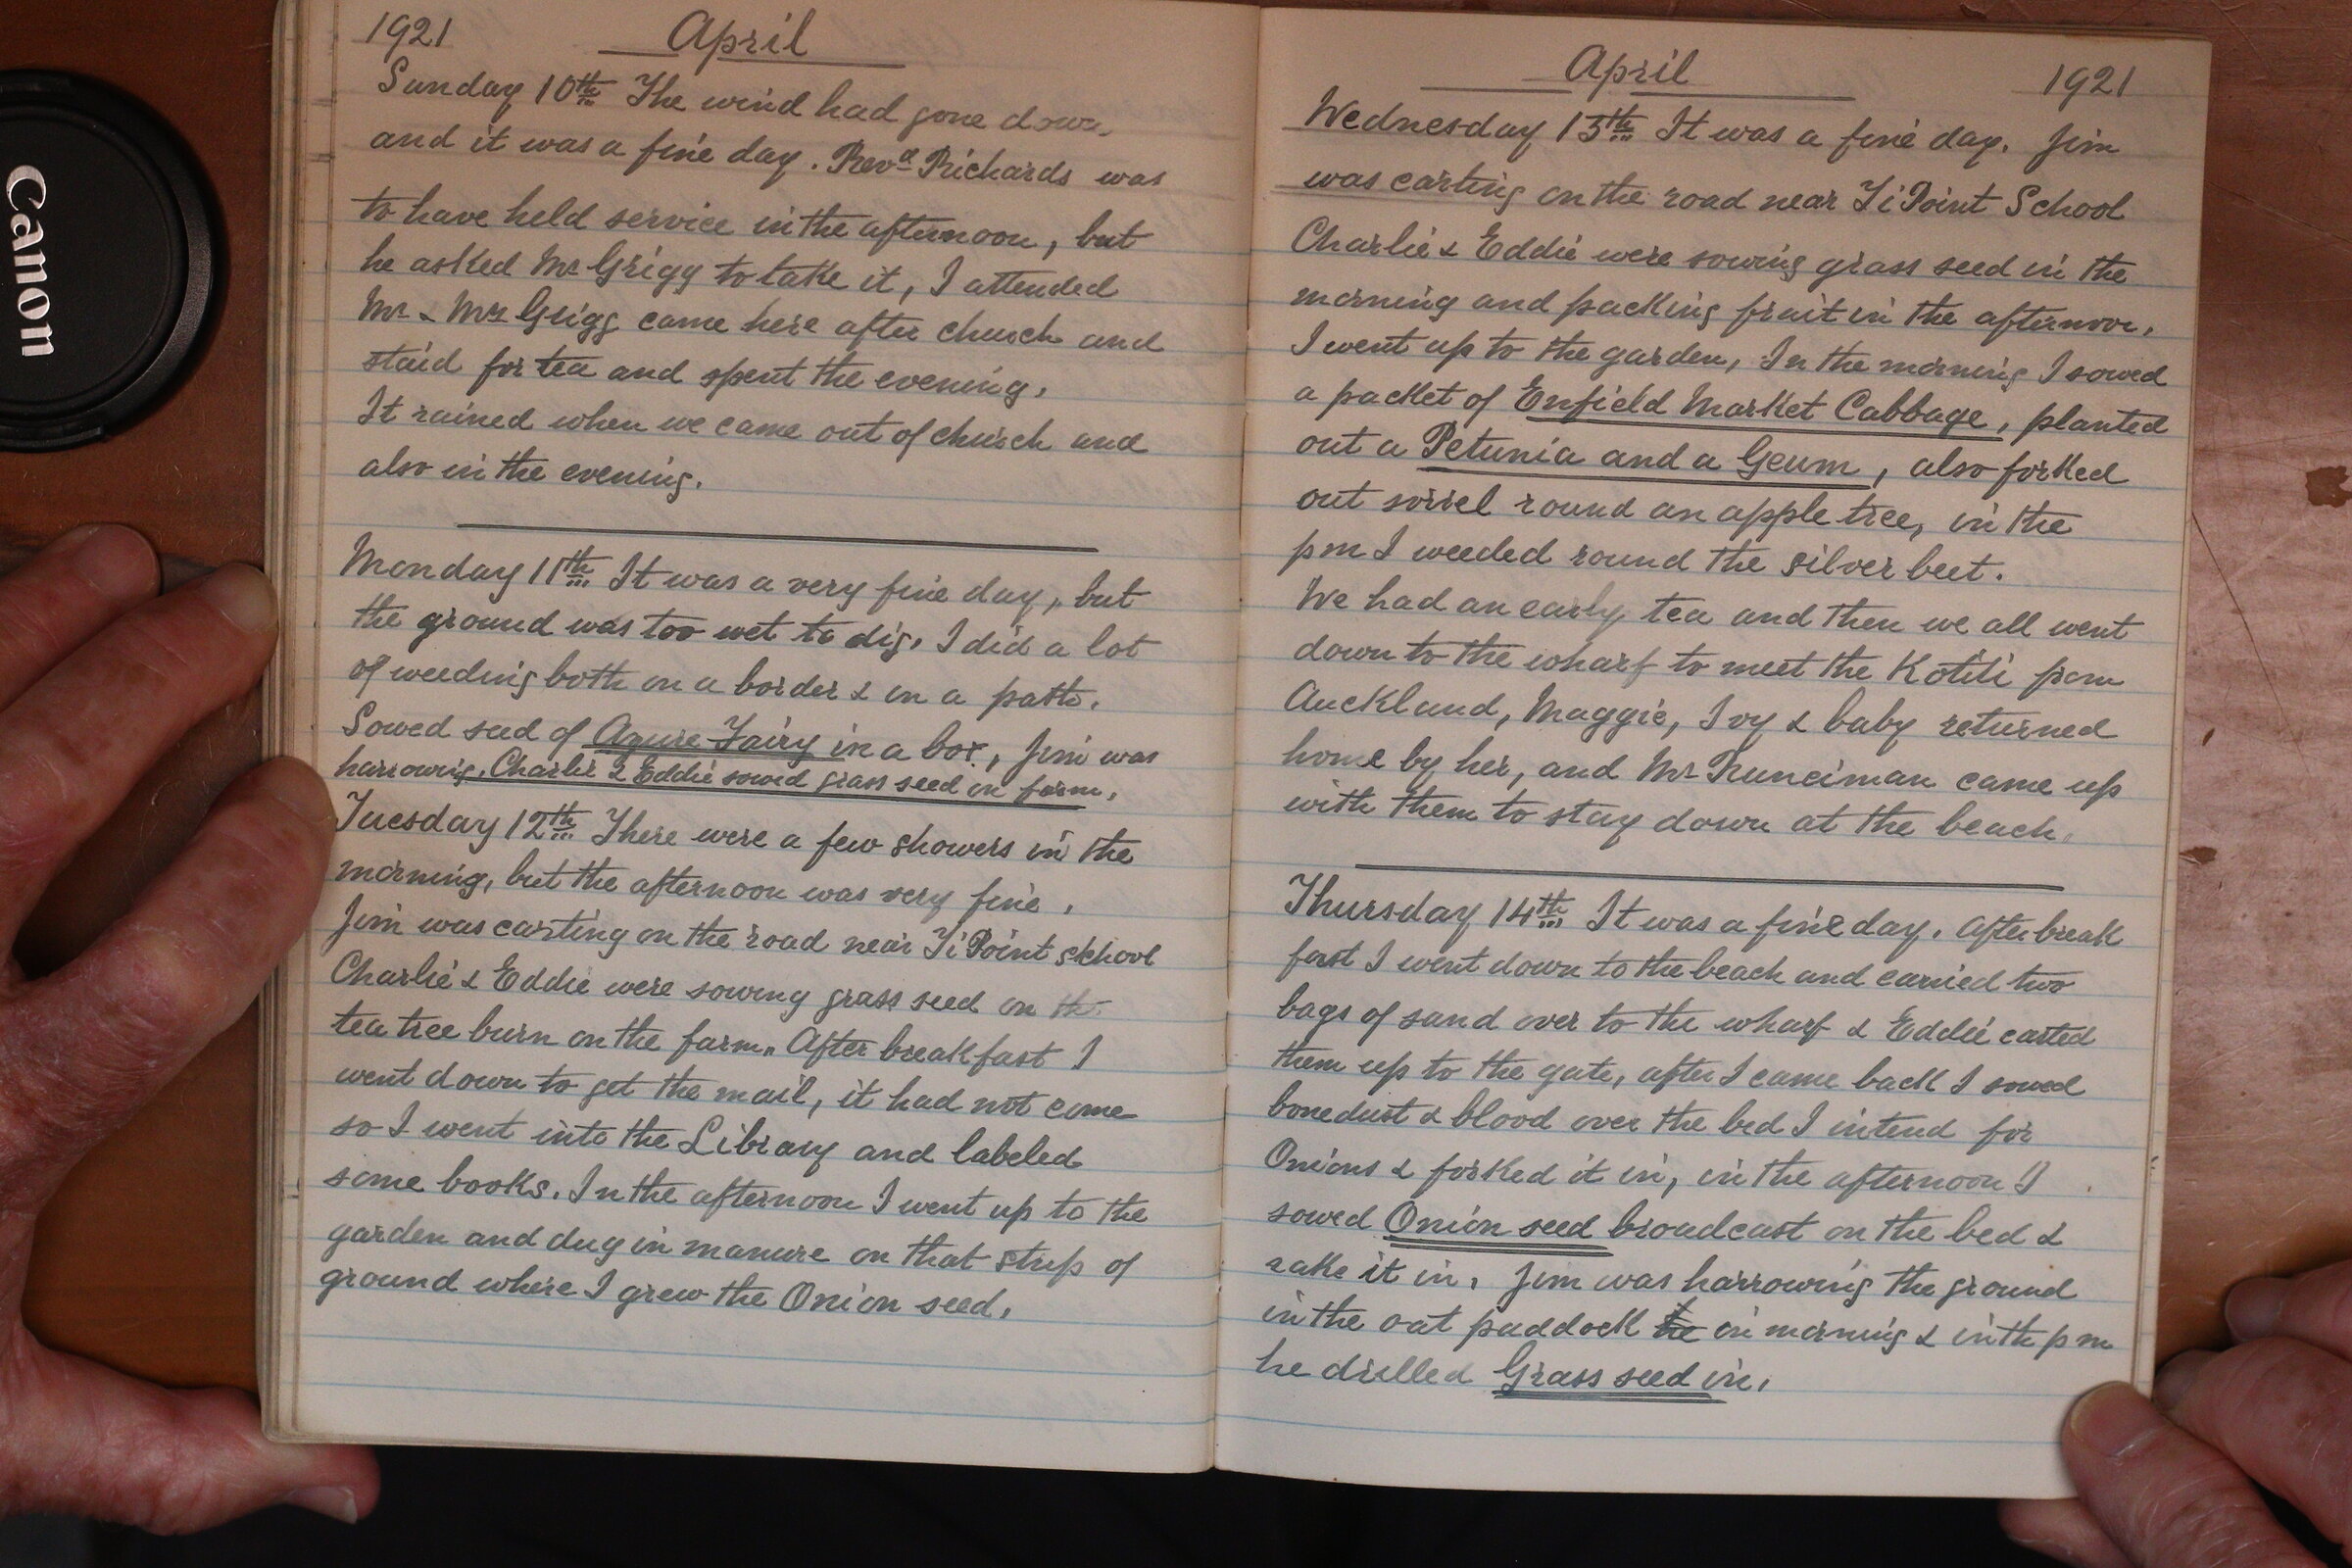 Canon
1921 April
Sunday 10th The wind had gone down
and it was a fine day. Revd Richards was
to have held service in the afternoon, but
he asked Mr Grigg to take it, I attended
Mr & Mrs Grigg came here after church and
staid for tea and spent the evening.
It rained when we came out of church and
also in the evening.
Monday 11th It was a very fine day, but
the ground was too wet to dig. I did a lot
of weeding both on a border & on a path.
Sowed seed of Azure Fairy in a box, Jim was
harrowing. Charlie & Eddie sowed grass seed on farm.
Tuesday 12th There were a few showers in the
morning, but the afternoon was very fine.
Jim was carting on the road near Ti Point School
Charlie & Eddie were sowing grass seed on the
tea tree burn on the farm. After breakfast I
went down to get the mail, it had not come
so I went into the Library and labeled
some books. In the afternoon I went up to the
garden and dug in manure on that strip of
ground where I grew the Onion seed.
April 1921
Wednesday 13th It was a fine day. Jim
was carting on the road near Ti Point School
Charlie & Eddie were sowing grass seed in the
morning and packing fruit in the afternoon.
I went up to the garden, In the morning I sowed
a packet of Enfield Market Cabbage, planted
out a Petunia and a Geum, also forked
out sorrel round an apple tree, in the
pm I weeded round the silver beet.
We had an early tea and then we all went
down to the wharf to meet the Kotiti from
Auckland, Maggie, Ivy & baby returned
home by her, and Mr Runciman came up
with them to stay down at the beach.
Thursday 14th It was a fine day. After break
fast I went down to the beach and carried two
bags of sand over to the wharf & Eddie carted
them up to the gate, after I came back I sowed
bonedust & blood over the bed I intend for
Onions & forked it in, in the afternoon I
sowed Onion seed broadcast on the bed &
rake it in. Jim was harrowing the ground
in the oat paddock in morning & in th pm
he drilled Grass seed in.